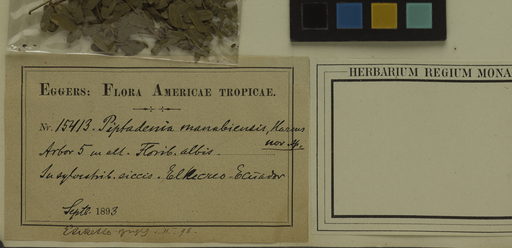 EGGERS: FLORA AMERICAE TROPICAE.
Nr. 15413. Piptadenia manabiensis, Harms
nov sp.
Arbor 5 m alt. Florib. albis.
In sylvestrib. siccis. El Recreo - Ecuador
Septb 1893
HERBARIUM REGIUM MONA